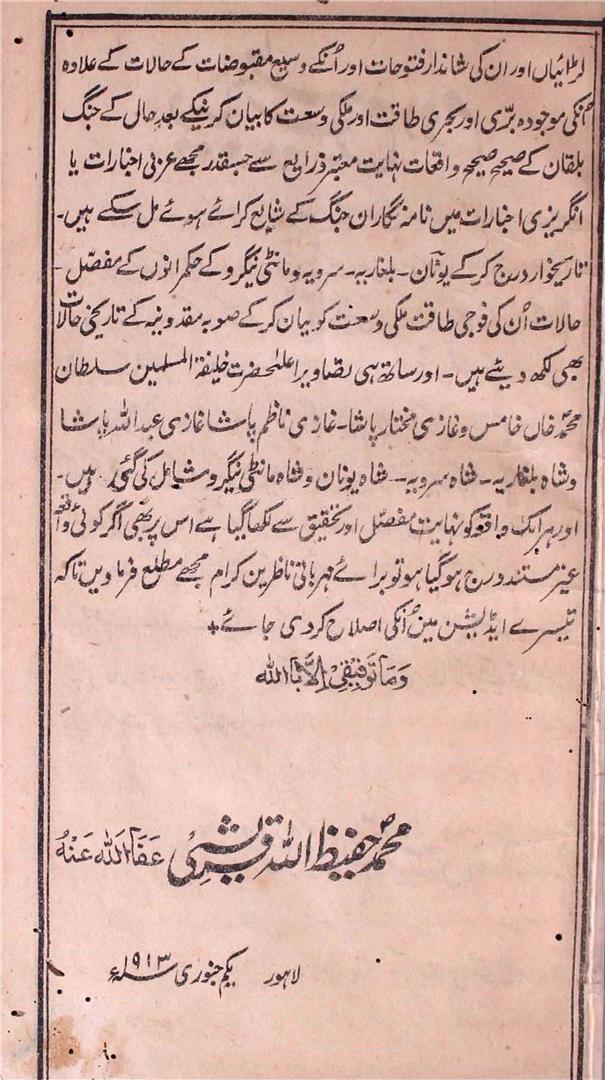 لڑائیاں اور ان کی شاندار فتوحات اور اُنکے وسیع مقبوضات کے حالات کے علاوہ
اُنکی موجودہ برّی اور بحری طاقت اور ملکی وسعت کا بیان کرنیکے بعد حال کے جنگ
بلقان کے صحیح صحیح واقعات نہایت معتبر ذرایع سے جسقدر مجھے عربی اخبارات یا
انگریزی اخبارات میں نامہ نگاران جنگ کے شایع کرائے ہوئے مل سکے ہیں۔
تاریخوار درج کرکے یونان۔ بلغاریہ۔ سرویہ و مانٹی نیگرو کے حکمرانوں کے مفصّل
حالات اُن کی فوجی طاقت ملکی وسعت کو بیان کرکے صوبہ مقدونیہ کے تاریخی حالات
بھی لکھ دیئے ہیں۔ اور ساتھ ہی تصاویر اعلیٰحضرت خلیفۃ المسلمین سلطان
محمدؐ خاں خامس و غازی مختار پاشا۔ غازی ناظم پاشا غازی عبداللہ پاشا
و شاہ بلغاریہ۔ شاہ سرویہ۔ شاہ یونان و شاہ مانٹی نیگرو شامل کی گئی ہیں۔
اور ہر ایک واقعہ کو نہایت مفصّل اور تحقیق سے لکھا گیا ہے اس پر بھی اگر کوئی واقعہ
غیر مستند درج ہوگیا ہو تو برائے مہربانی ناظرین کرام مجھے مطلع فرماویں تاکہ
تیسرے ایڈیشن میں اُنکی اصلاح کردی جائے٭
وَمَا تَوفِیقِیْ اِلَّا بِاللّٰہ
محمدؐ حفیظ اللہ قریشی عَفَا اللّٰہ عَنْہُ
لاہور یکم جنوری ۱۹۱۳ء